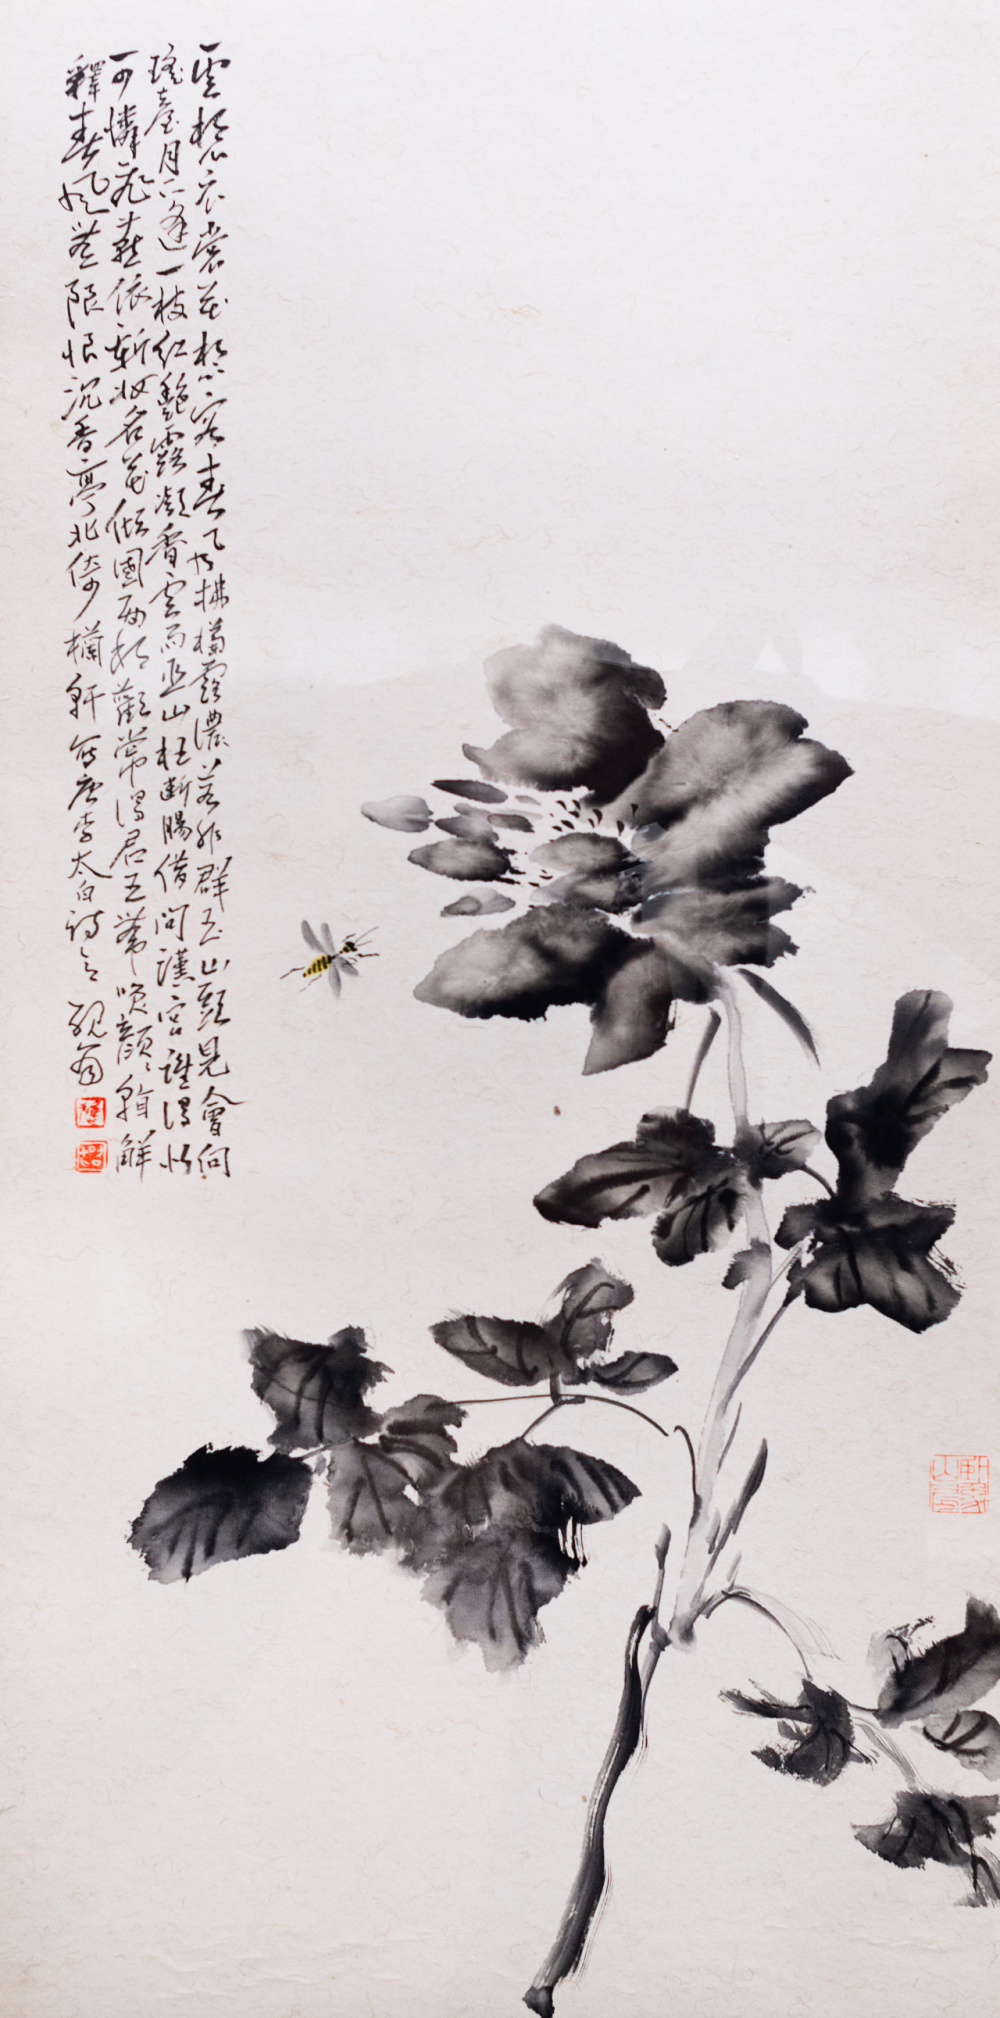 雲想衣裳花想容春風拂檻露濃若非群玉山頭見會向
瑤臺月下逢一枝紅豔露凝香雲雨巫山枉斷腸借問漢宮誰得似
可憐飛燕依新妝名花傾國兩相歡常得君王帶笑顏看解
釋春風無限恨沉香亭北倚欄軒寫唐李太白詩意翁